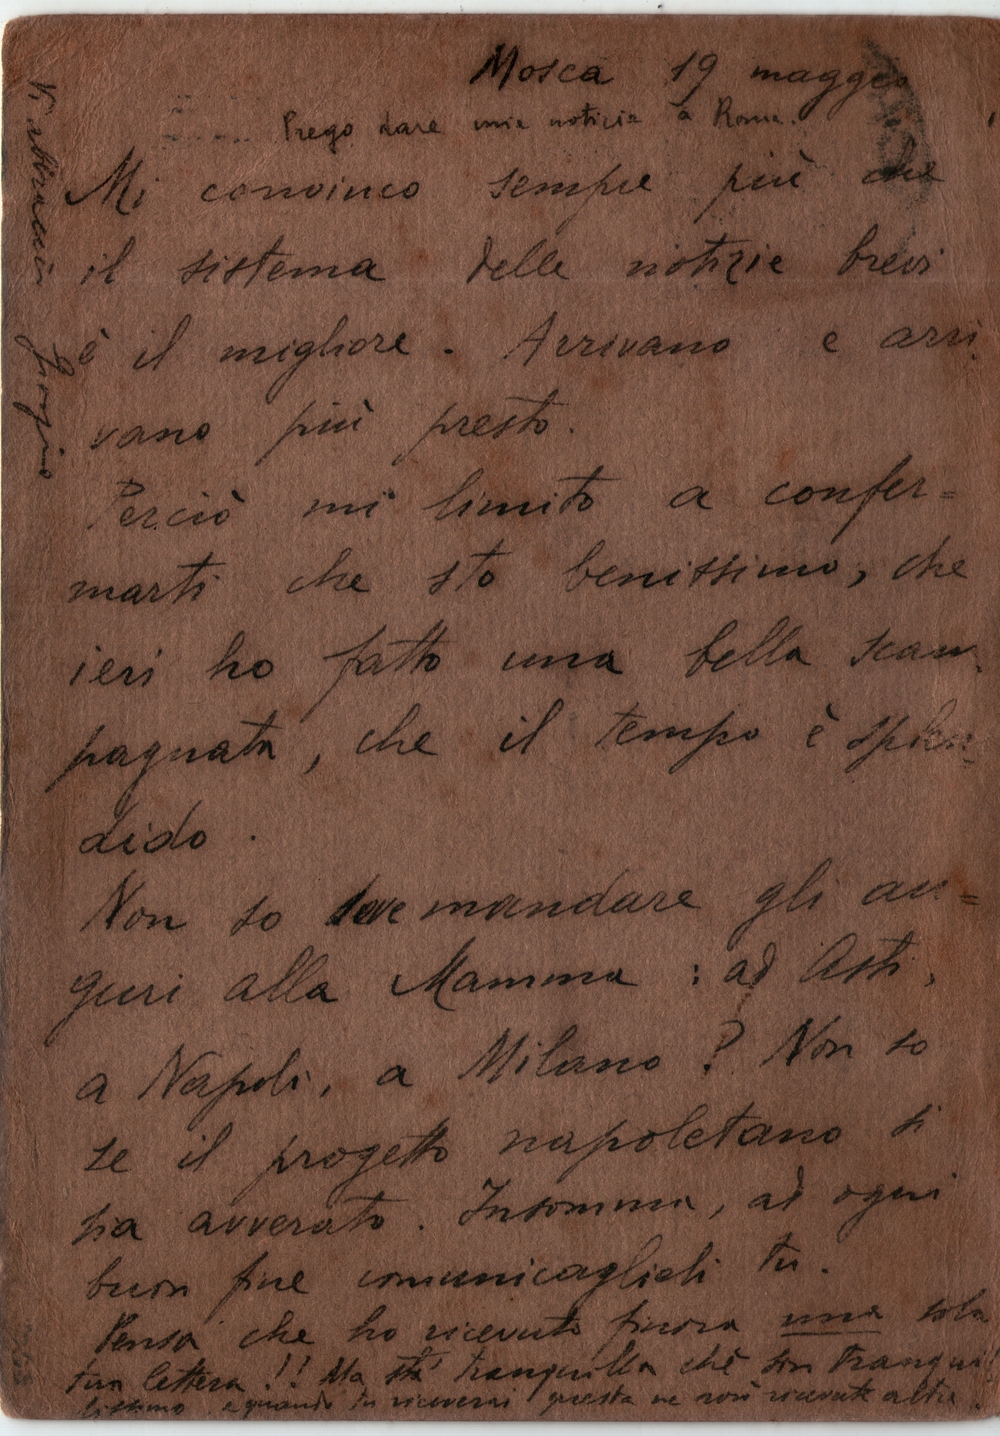 Mosca 19 maggio
Prego dare mie notizie a Roma.
Mi convinco sempre più che
il sistema delle notizie brevi
è il migliore. Arrivano e arri
vano più presto.
Perciò mi limito a confer=
marti che sto benissimo, che
ieri ho fatto una bella scam
pagnata, che il tempo è splen
dido.
Non so dove mandare gli au=
guri alla Mamma: ad Asti,
a Napoli, a Milano? Non so
se il progetto napoletano si
sia avverato. Insomma, ad ogni
buon fine comunicaglieli tu.
Pensa che ho ricevuto finora una sola
tua lettera!! Ma sta tranquilla chè son tranqui
lissimo e quando tu riceverai questa ne avrò ricevute altre.
Vi abbraccio Giorgio